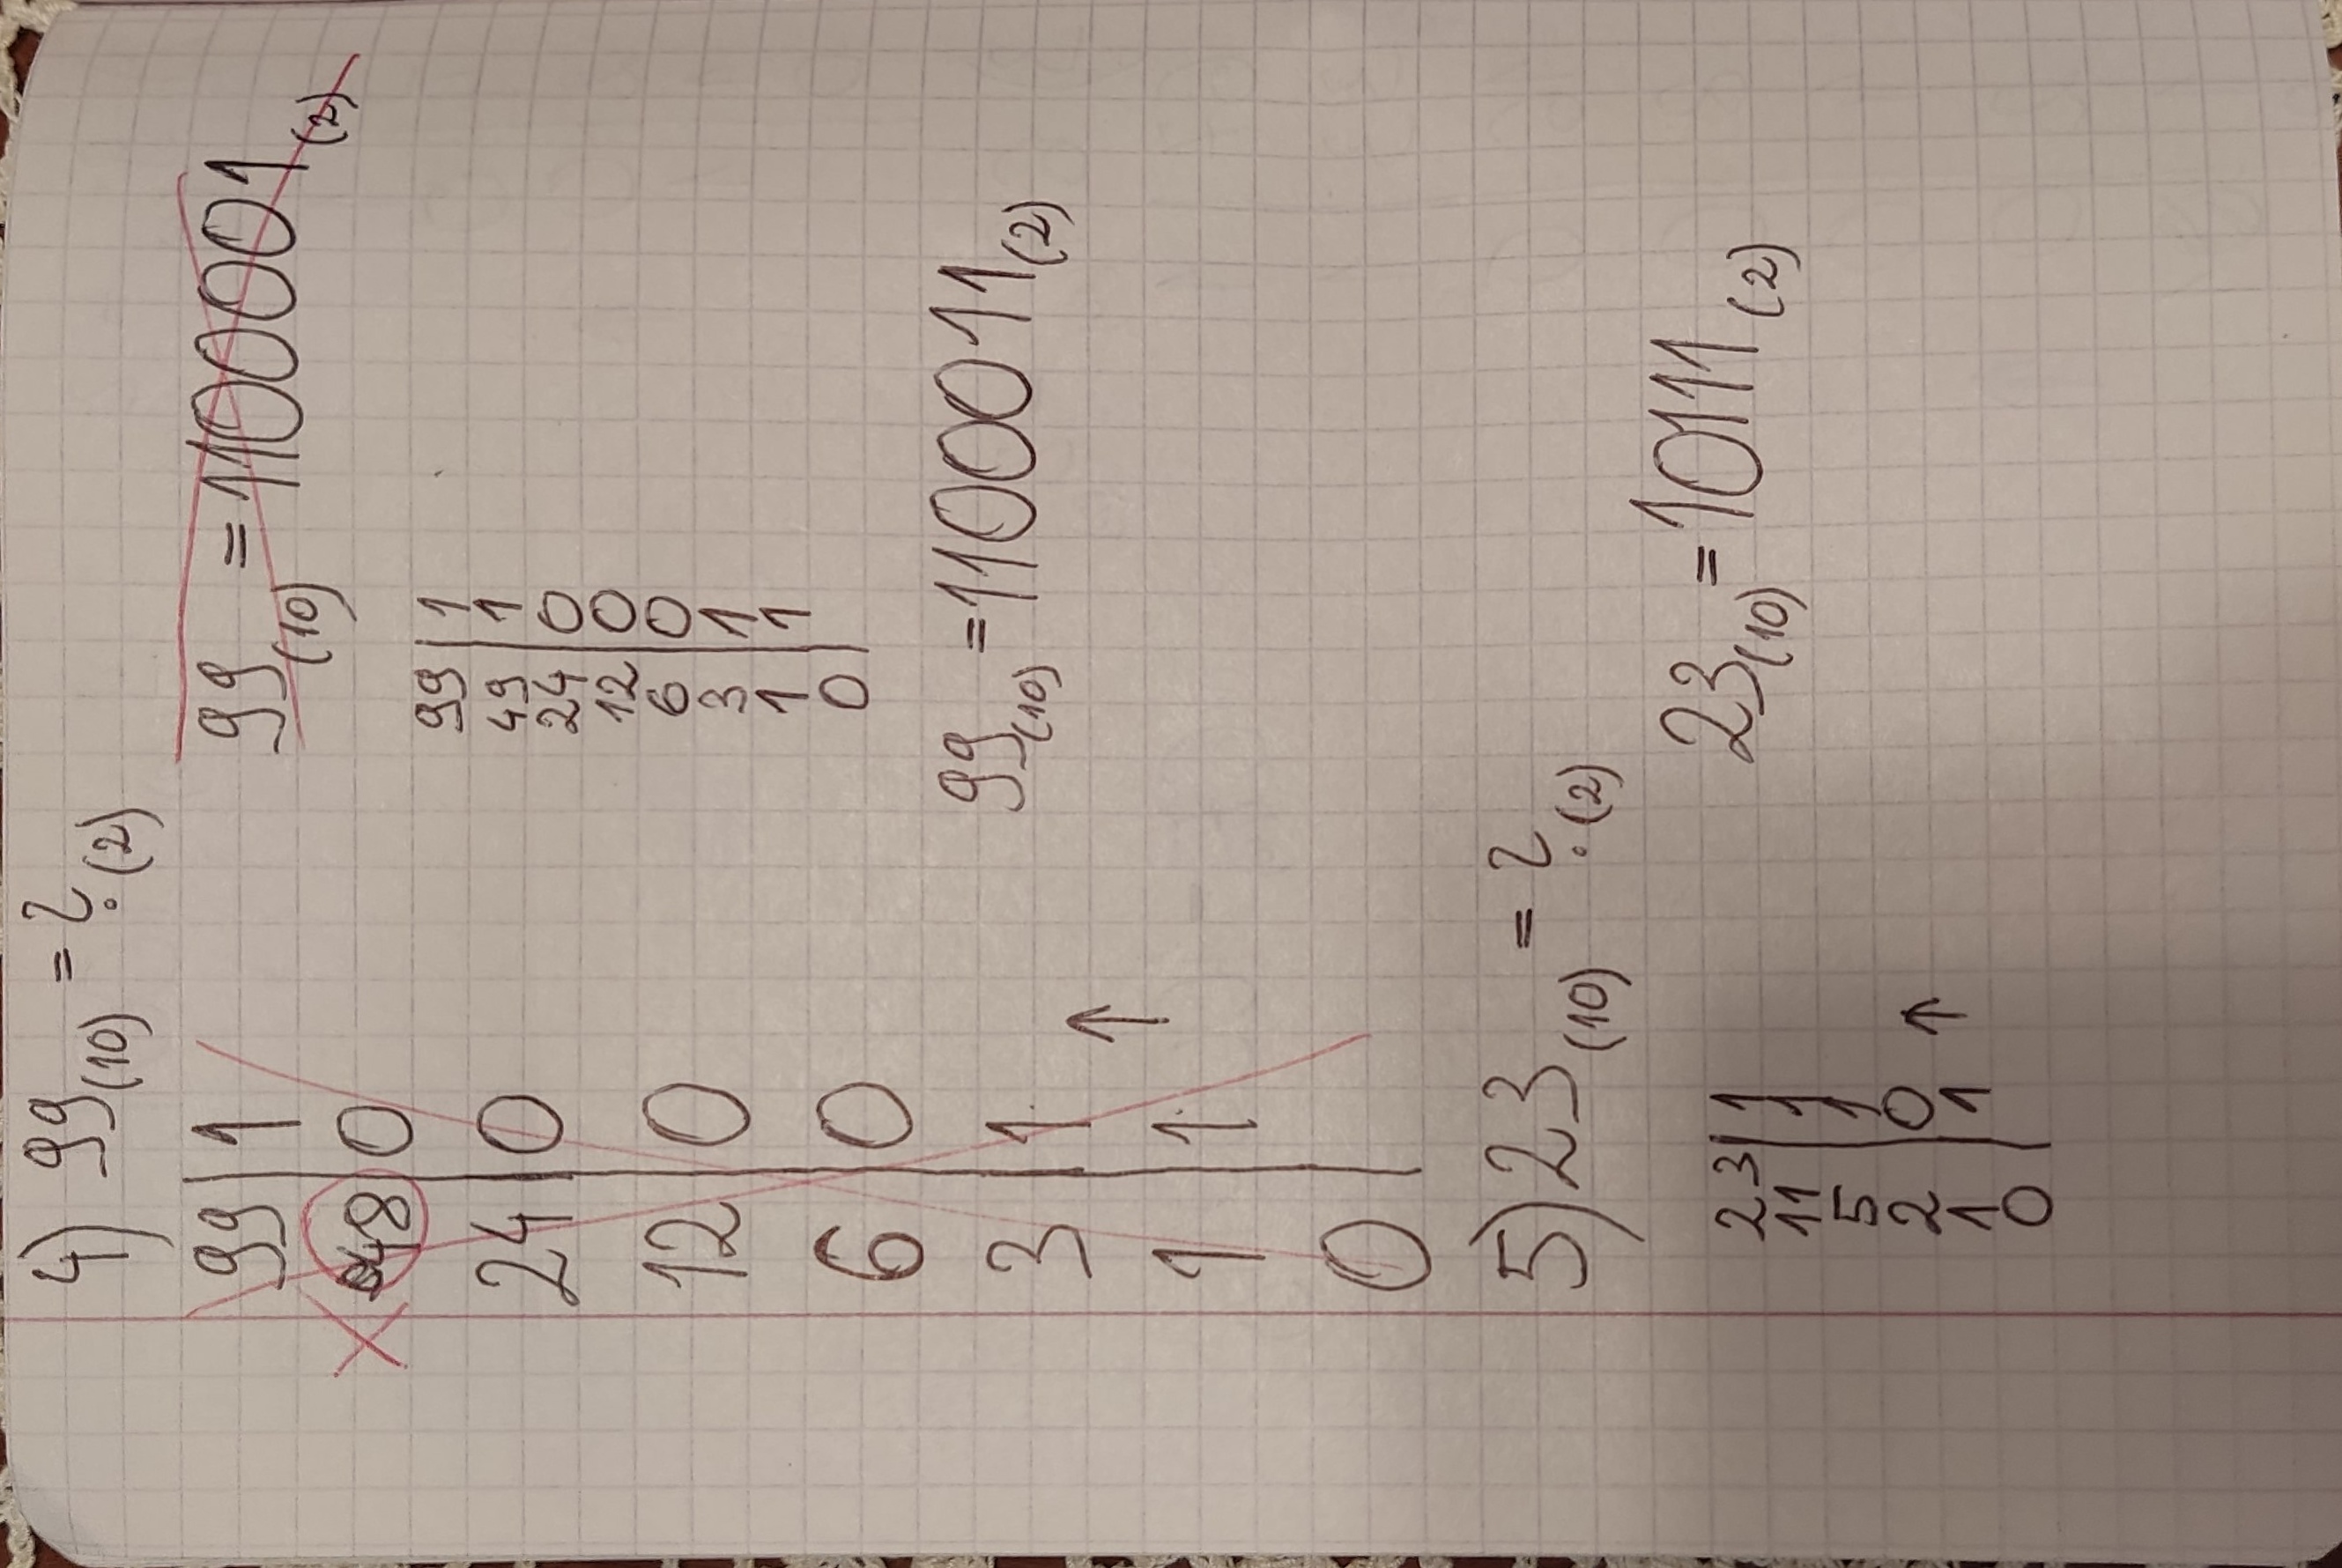 4) 99(10) = ?(2)
99 | 1
48 | 0
24 | 0
12 | 0
6 | 0
3 | 1
1 | 1 ↑
0 |
99(10) = 1100001(2)
99 | 1
49 | 1
24 | 0
12 | 0
6 | 0
3 | 1
1 | 1
0 |
99(10) = 1100011(2)
5) 23(10) = ?(2)
23 | 1
11 | 1
5 | 1
2 | 0 ↑
1 | 1
0 |
23(10) = 10111(2)